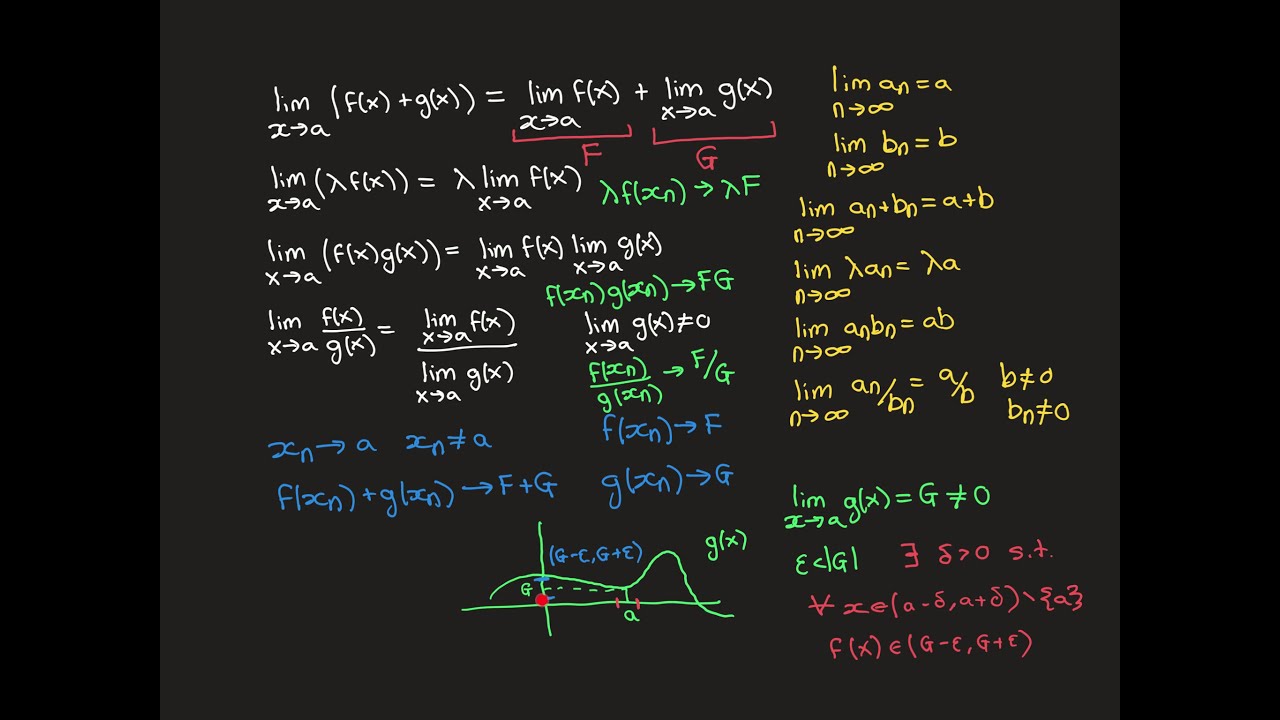 lim x→a (f(x) + g(x)) = lim x→a f(x) + lim x→a g(x)
F
G
lim x→a (λf(x)) = λ lim x→a f(x)
λf(xn) → λF
lim x→a (f(x)g(x)) = lim x→a f(x) lim x→a g(x)
f(xn)g(xn) → FG
lim x→a f(x)/g(x) = lim x→a f(x) / lim x→a g(x)
lim x→a g(x) ≠ 0
f(xn)/g(xn) → F/G
xn → a xn ≠ a
f(xn) → F
f(xn) + g(xn) → F + G
g(xn) → G
(G-ε, G+ε)
g(x)
G
a
lim n→∞ an = a
lim n→∞ bn = b
lim n→∞ an + bn = a + b
lim n→∞ λan = λa
lim n→∞ anbn = ab
lim n→∞ an/bn = a/b b ≠ 0
bn ≠ 0
lim x→a g(x) = G ≠ 0
ε < |G| ∃ δ > 0 s.t.
∀ x ∈ (a-δ, a+δ) \ {a}
f(x) ∈ (G-ε, G+ε)